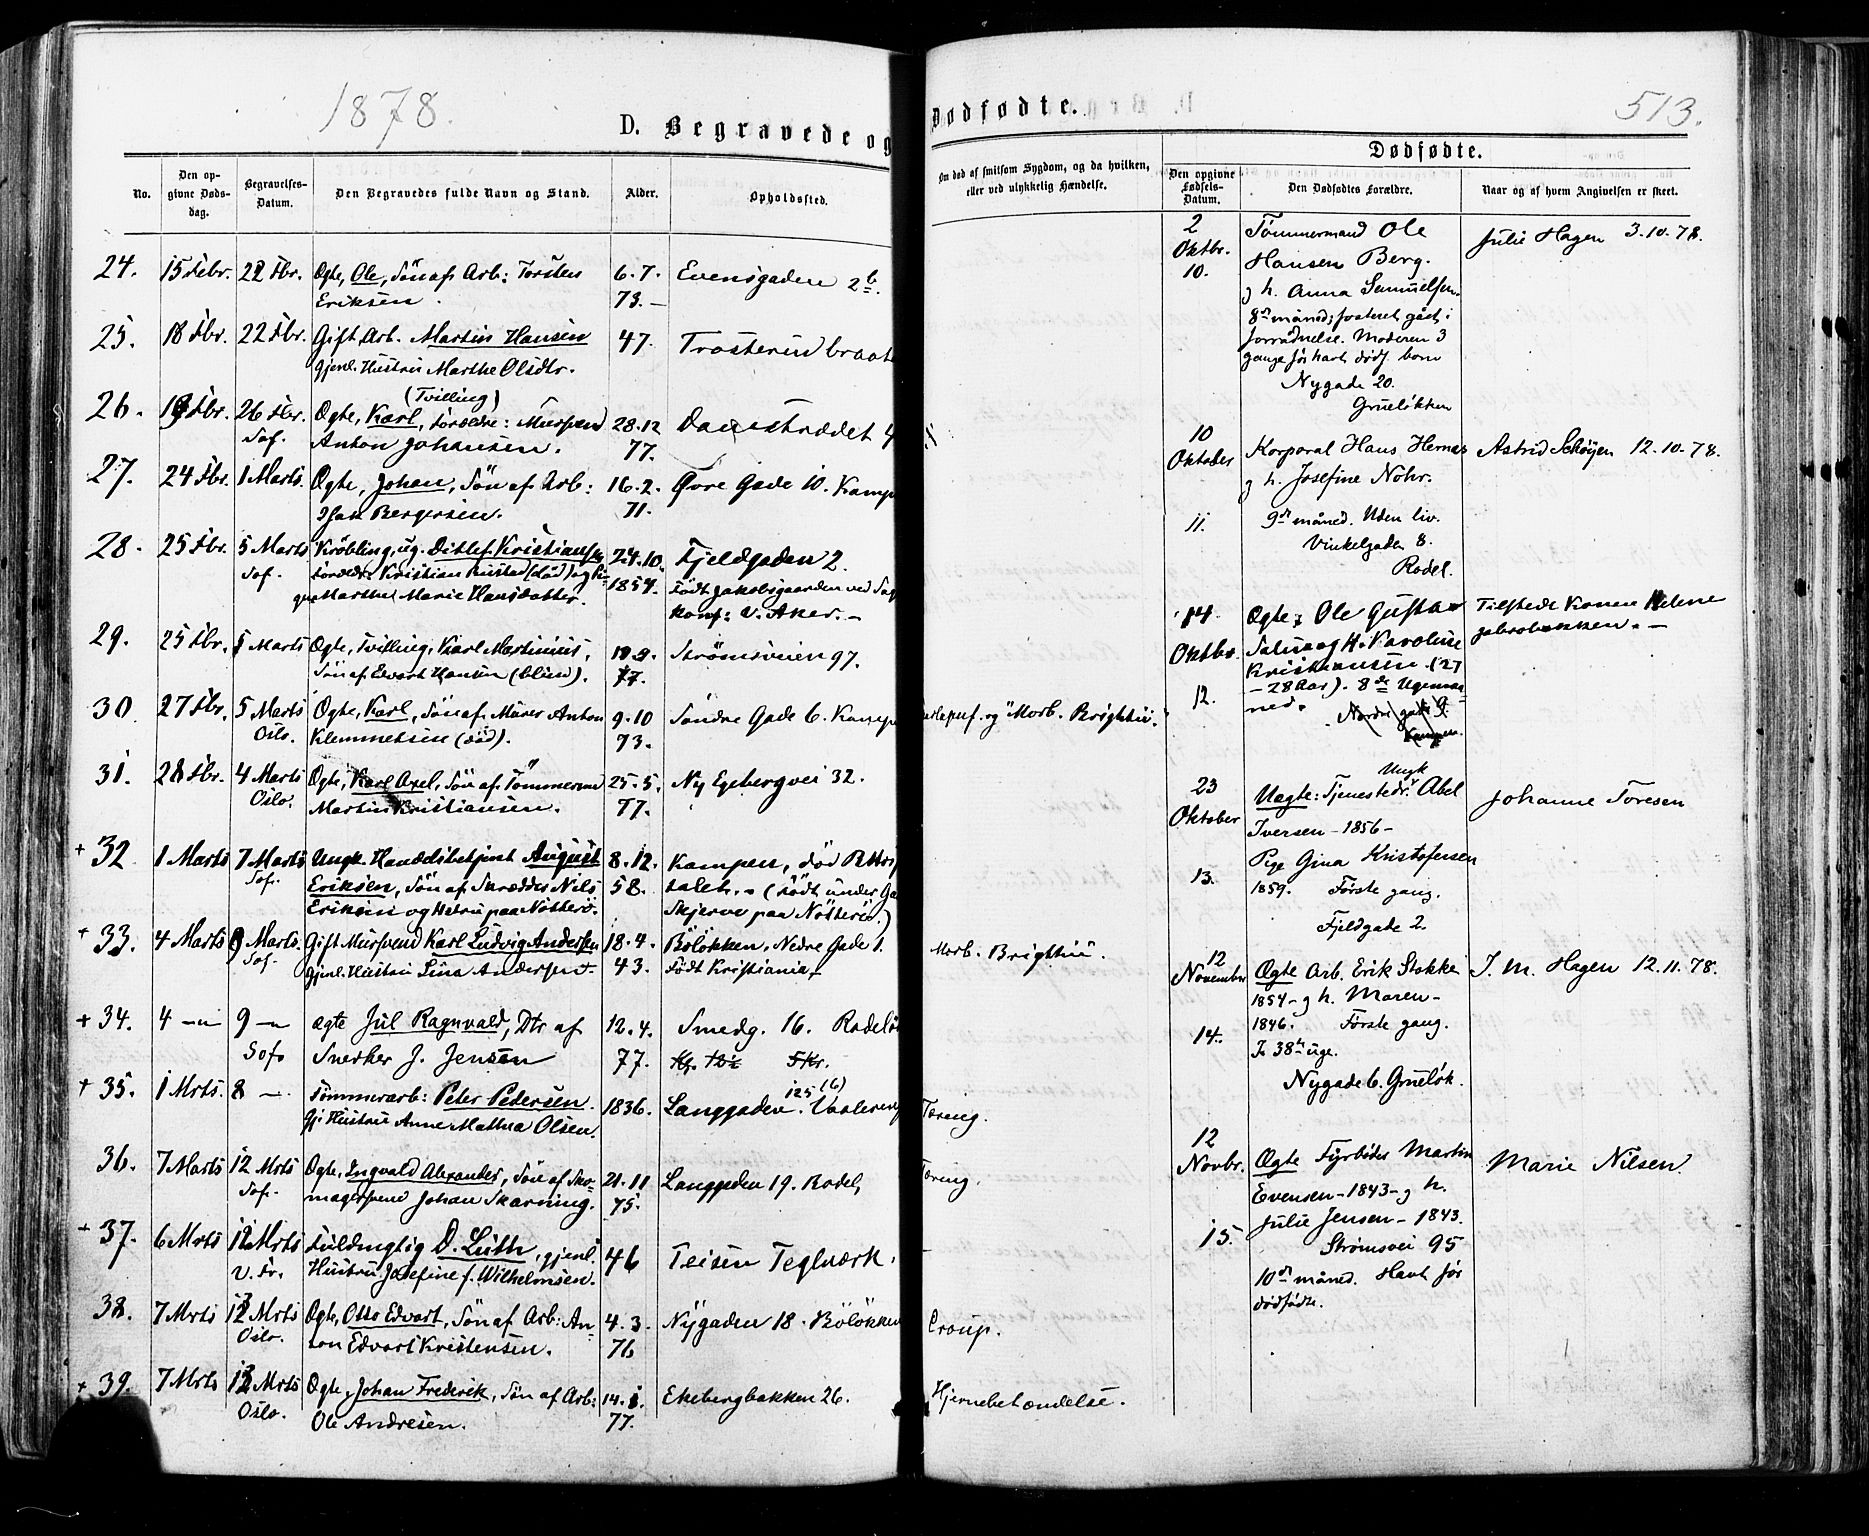 1878.
513.
D. Begravede og Dødfødte.
Dødfødte.
No.
Den opgivne Dødsdag.
Begravelses-Datum.
Den Begravedes fulde Navn og Stand.
Alder.
Opholdssted.
Om død af smitsom Sygdom, og da hvilken, eller ved ulykkelig Hændelse.
Den opgivne Fødsels-Datum.
Den Dødfødtes Forældre.
Naar og af hvem Angivelsen er skeet.
24. 15 Febr. 22 Fbr. Ægte, Ole, Sön af Arb: Torsten 6.7. Evensgaden 2b.
Eriksen. 73.—
25. 18 Fbr. 22 Fbr. Gift, Arb. Martin Hansen 47. Trosterud braat
gjenl. Hustru Marthe Olsdtr.
(Tvilling)
26. 19 Fbr. 26 Fbr. Ægte, Karl, Forældre: Mursvend 28.12 Damstrædet 4
Sof. Anton Johansen. 77.
27. 24 Fbr. 1 Marts. Ægte, Johan, Sön af Arb: 16.2. Øvre Gade 10. Kamp
Isak Bergersen. 71.
28. 25 Fbr. 5 Marts Kröbling, ug. Ditlef Kristiansen 24.10. Fjeldgaden 2.
Sof. Forældr. Kristian Rustad (död) og Pi- 1857. Födt Jakobsgaarden ved Sag
ge Marthe Marie Hansdatter. konf: V. Aker.—
29. 25 Fbr. 5 Marts Ægte, Tvilling, Karl Martinius, Strömsveien 97.
Sön af Edvart Hansen (blind). 77.
30. 27 Fbr. 5 Marts Ægte, Karl, Sön af Murer Anton 9.10 Söndre Gade 6. Kamp og "Morb. Brightii."
Oslo. Klemmetsen (död). 73.
31. 28 Fbr. 4 Marts Ægte, Karl Axel, Sön af Tömmermd 25.5. Ny Egebergvei 32.
Oslo. Martin Kristiansen. 77.
+ 32 1 Marts 7 Marts Ungk. Handelsbetjent August 8.12. Kampen, död Rthosp
Sof. Eriksen, Sön af Skrædder Nils 58. talet.— (Födt under Ga
Eriksen og Hstru paa Nötterö. Skjerve paa Nötterö.)
+ 33. 4 Marts 9 Marts. Gift Mursvend Karl Ludvig Andersen 18.4. Bölökken, Nedre Gade 1. Morb. Brightii.
Sof. gjenl. Hustru Lina Andersen 43. Födt Kristiania.
+ 34. 4 — 9 — ægte Jul Ragnvald, Dtr af 12.4. Smedg. 16. Rodelö
Sof. Snedker J. Jensen 77.
+ 35. 1 Mrts. 8 — Tömmerarb: Peter Pedersen 1836. Langgaden 125 (6). Vaalereng Tæring.
gj. Hustru Anne Mathea Olsen.
36. 7 Marts 12 Mrts Ægte, Ingvald Alexander, Sön af Sko- 21.11 Langgaden 19. Rodel, Tæring.
Sof. magersvend Johan Skarning. 75.
+ 37. 6 Mrts 12 Mrts Fuldmægtig D. Lüth, gjenl. 46 Teisen Teglværk. —
V. Fr. Hustru Josefine f. Wilhelmsen.
38. 7 Mrts 13 Mrts Ægte, Otto Edvart, Sön af Arb: An- 4.3. Nygaden 18. Bölökken Croup.
Oslo. ton Edvart Kristensen. 76
+ 39. 7 Mrts 13 Mrts Ægte, Johan Frederik, Sön af Arb: 14.1. Ekebergbakken 26. Hjernebetændelse.
Oslo. Ole Andresen. 77.
2 Oktbr. 10. Tømmermand Ole Julie Hagen 3.10.78.
Hansen Berg.
g h. Anna Samuelsen.
8de måned; fosteret gået i
forrådnelse. Moderen 3
gange før havt dødf. born
Nygade 20.
Grueløkken
10 Oktober 11. Korporal Hans Hernæs Astrid Schøyen 12.10.78.
g h. Josefine Nohr.
9de måned. Uden liv.
Vinkelgaden 8.
Rodel.
14 Oktbr. 12. Ægte; Ole Gustav Tilstede Konen Helene
Salin og H. Karoline Jakobakken.—
Kristiansen (27
— 28 Aar). 8de Ugemaa-
ned.
Nordre gade 9.
Kampen.
23 Oktober 13. Ungk
Uægte: Tjenestedr. Abel Johanne Toresen
Iversen — 1856 —
Pige Gina Kristofersen
1859. Første gang.
Fjeldgade 2.
12 November 14. Ægte Arb. Erik Stokke J. M. Hagen 12.11.78.
1854 — g h. Maren —
1846. Første gang.
I 38te uge.
Nygade 6. Grueløk.
12 Novbr. 15. Ægte Fyrbøder Martin Marie Nilsen
Evensen — 1843 — g h.
Julie Jensen — 1843.
Strømsvei 95
10de måned. Havt før
dødfødte.